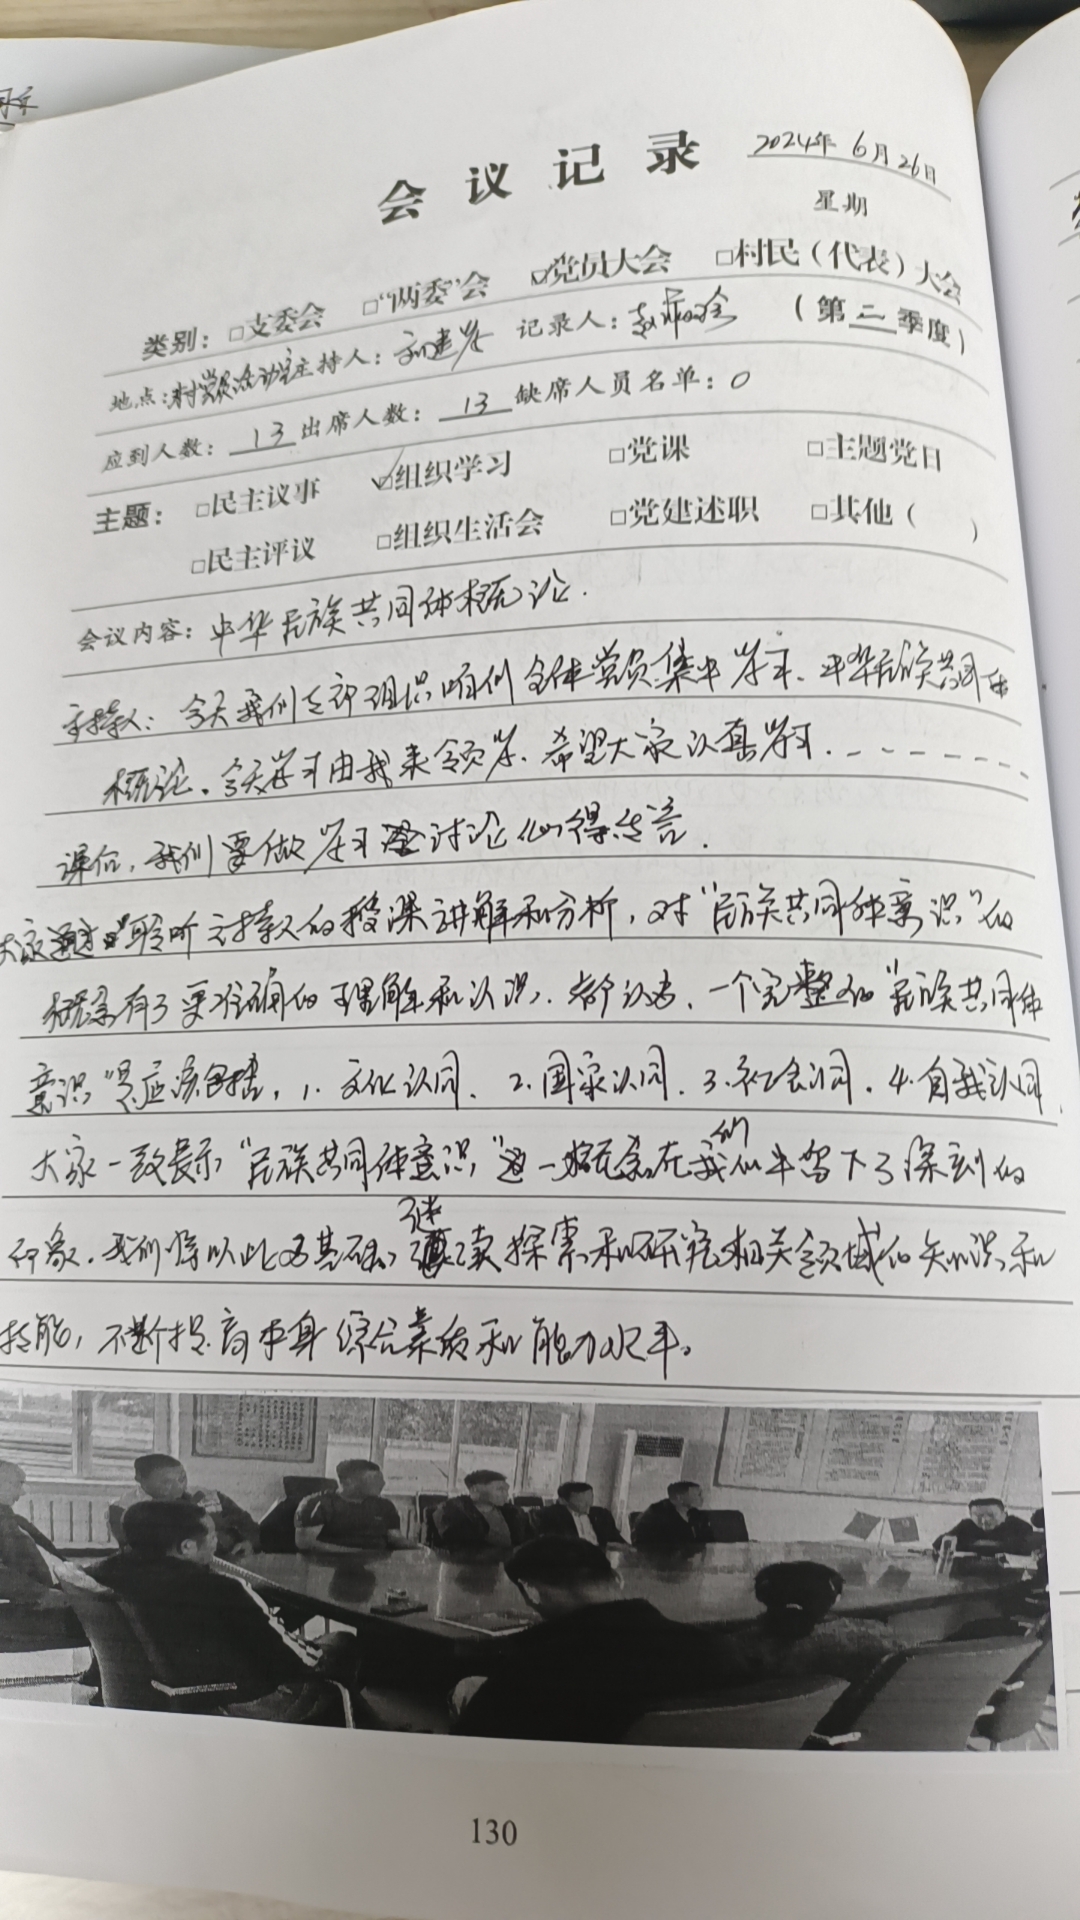 会议记录
2024年 6月 26日
星期
类别：□支委会 □“两委”会 ☑党员大会 □村民（代表）大会
地点：村党员活动室 主持人：刘建 记录人：赵 （第二季度）
应到人数：13 出席人数：13 缺席人员名单：0
主题：□民主议事 ☑组织学习 □党课 □主题党日
□民主评议 □组织生活会 □党建述职 □其他（ ）
会议内容：中华民族共同体概论.
主持人：今天我们支部组织咱们全体党员集中学习、中华民族共同体
概论。今天学习由我来领学、希望大家认真学习.--------
课后，我们要做学习讨论心得传言.
大家通过聆听主持人的授课讲解和分析，对“民族共同体意识”的
概念有了更准确的理解和认识、都认为、一个完整的“民族共同体
意识”是应该包括，1.文化认同、2.国家认同、3.社会认同、4.自我认同
大家一致表示“民族共同体意识”这一概念在我们心中留下了深刻的
印象、我们将以此为基础，继续探索和研究相关领域的知识和
技能，不断提高本身综合素质和能力水平。
130